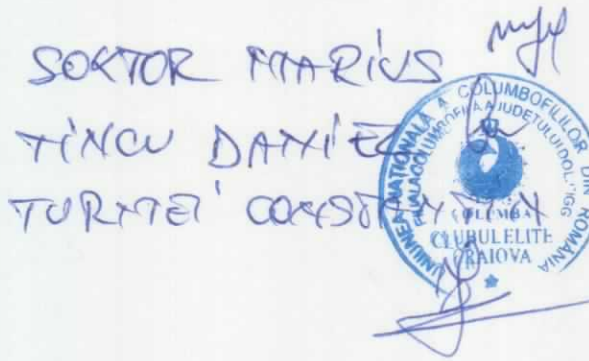 SOKTOR MARIUS
TINCU DANIEL
TURMEI CONSTANTIN
UNIUNEA NATIONALA A COLUMBOFILILOR DIN ROMANIA
FILIALA COLUMBOFILA A JUDETULUI DOLJ
COLUMBA
CLUBUL ELITE
CRAIOVA